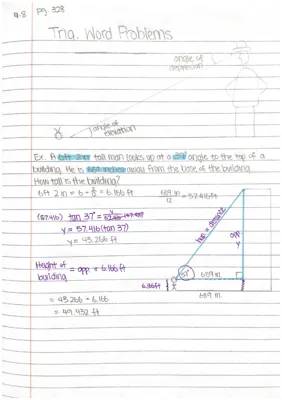 4.8 pg. 328
Trig. Word Problems
angle of
depression
angle of
elevation
Ex. A 6ft 2in tall man looks up at a 37° angle to the top of a
building. He is 689 inches away from the base of the building.
How tall is the building?
6ft 2in = 6 = 6.166 ft
689 in
12
= 57.416 ft
(57.416) tan 37° =
y = 57.416 (tan 37)
y = 43.266 ft
Height of
building = opp + 6.166 ft
= 43.266 + 6.166
= 49.432 ft
hyp = distance
opp
y
37°
689 in
6.166 ft
689 in